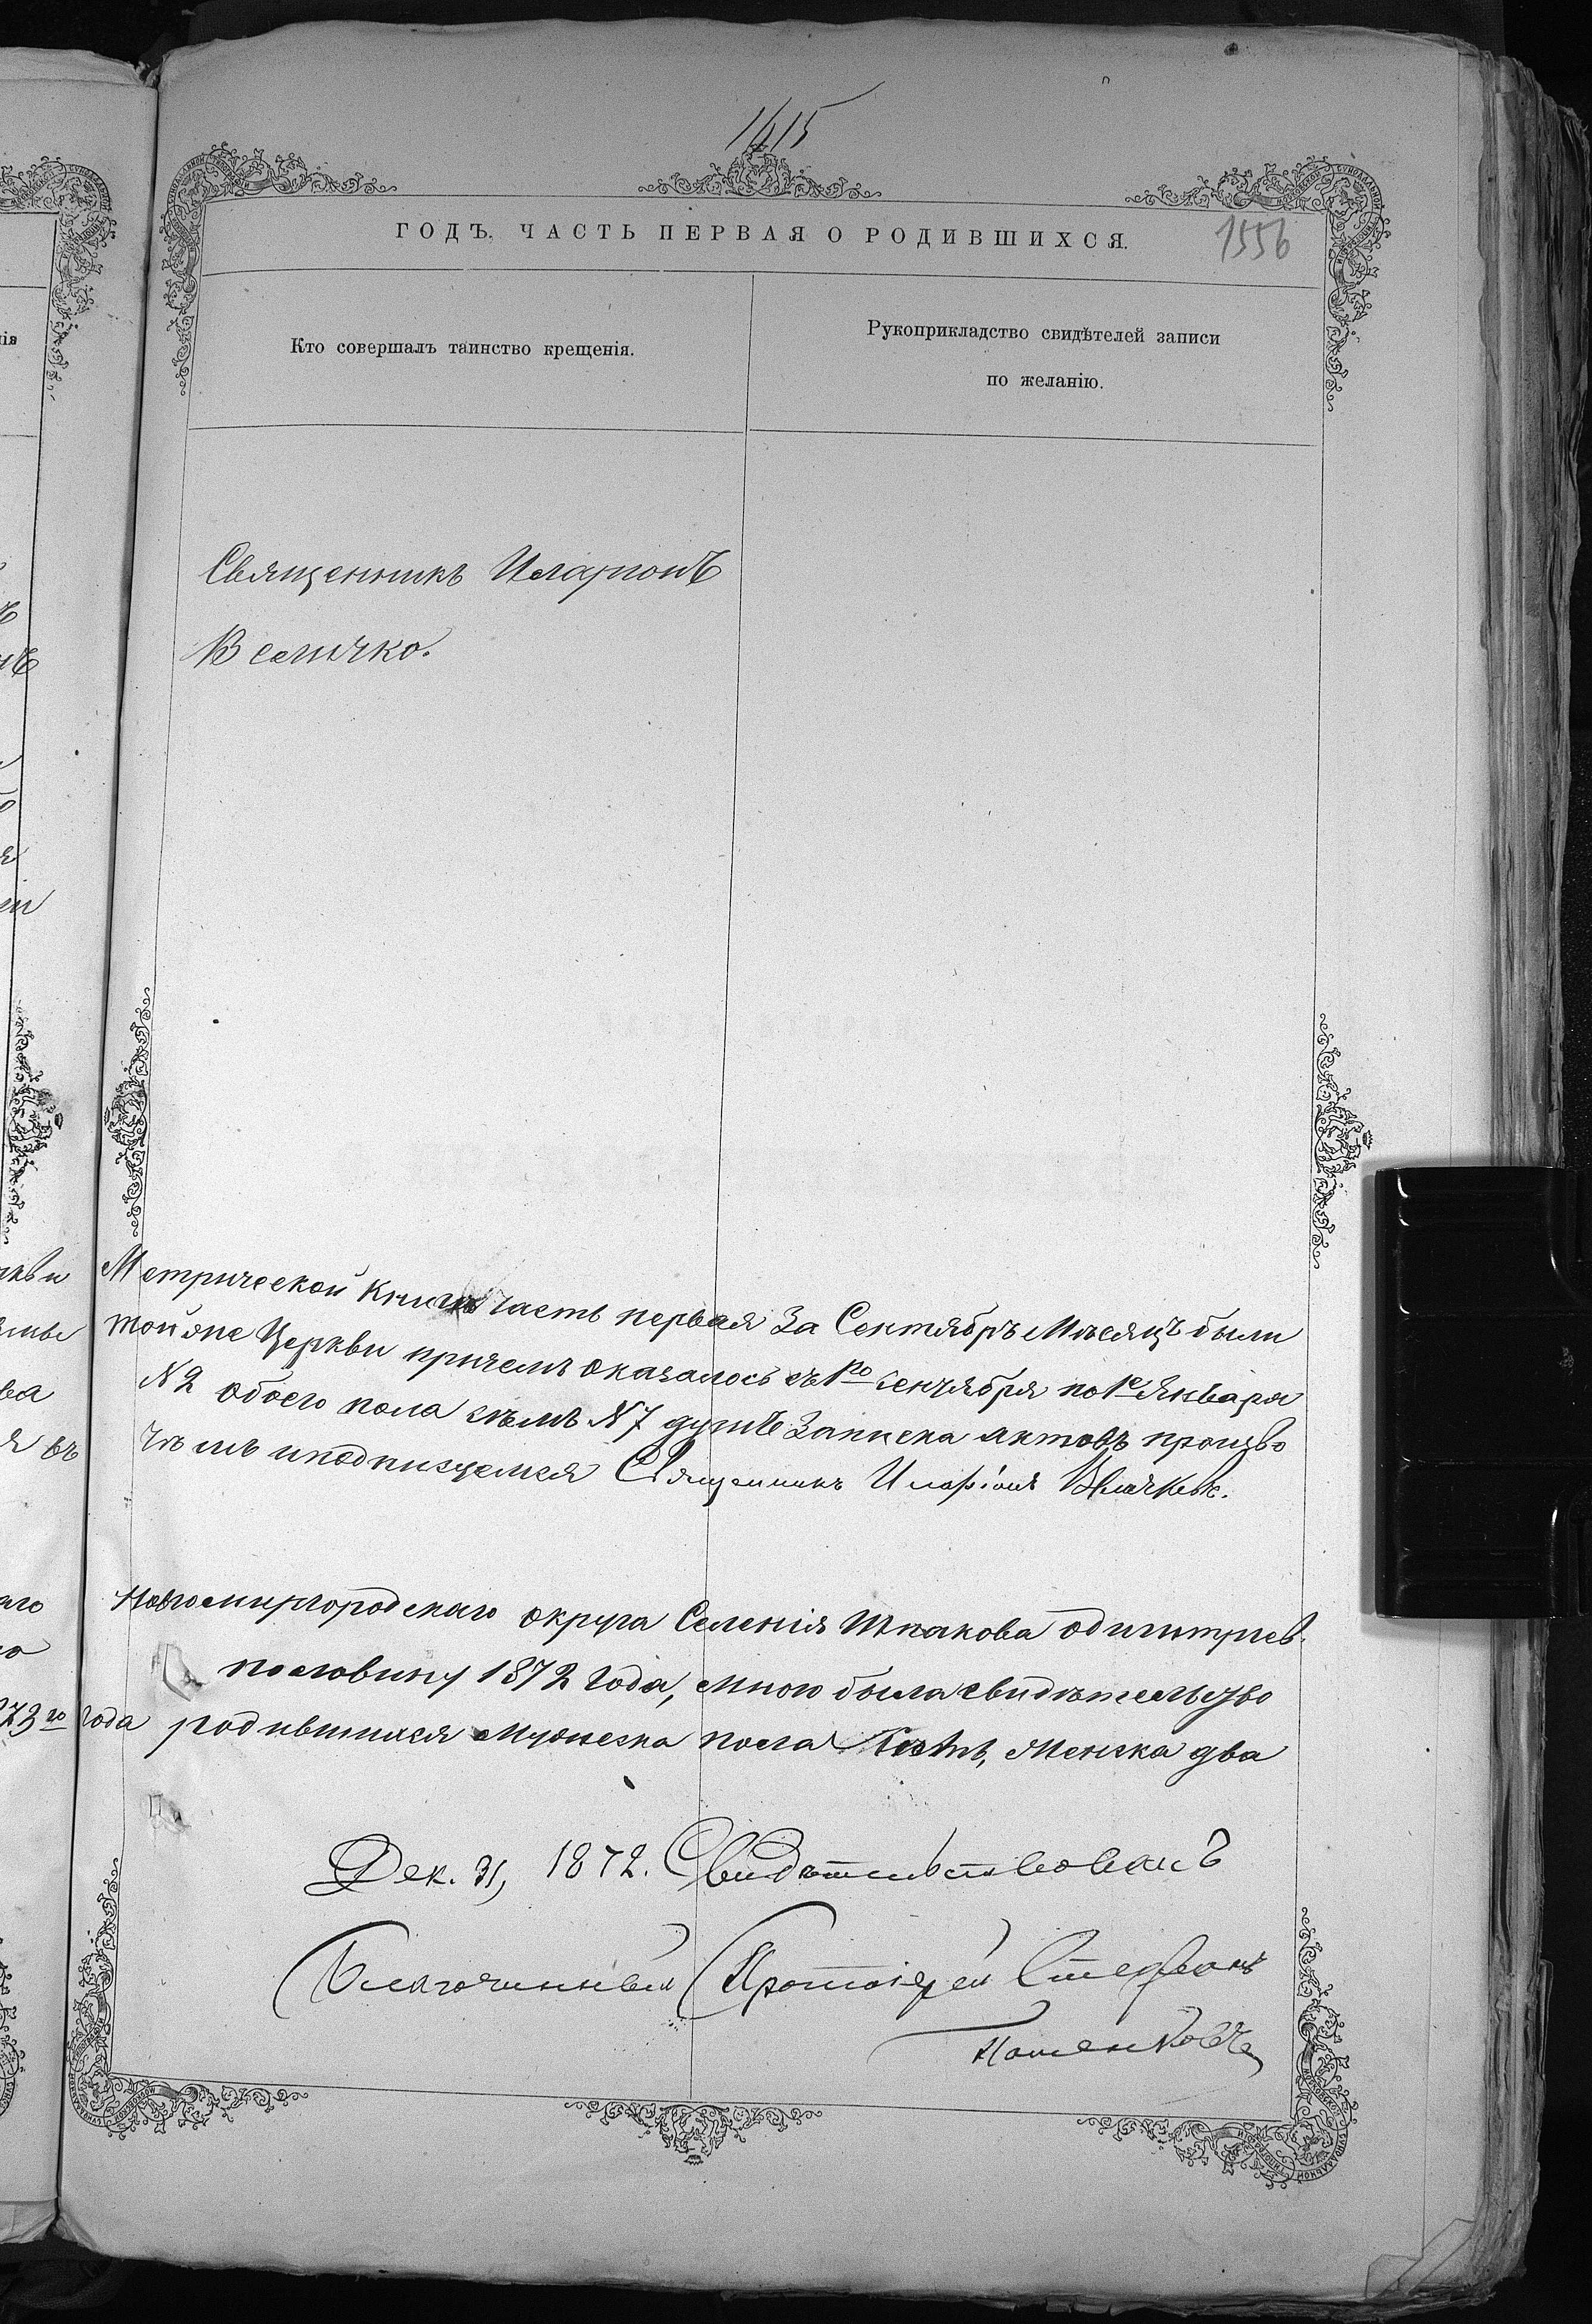 1415
ГОДЪ. ЧАСТЬ ПЕРВАЯ О РОДИВШИХСЯ.
1556
Кто совершалъ таинство крещенія.
Рукоприкладство свидѣтелей записи
по желанію.
Священникъ Иларіонъ
Величко.
Метрической Книги часть первая За Сентябрь Мѣсяцъ были
той яне Церкви причемъ оказалось съ 1го сентября по 1е Января
№ 2 обоего пола семь № 7 душъ Записка актовъ произво
чѣмъ и подписуемся Священникъ Иларіонъ Величко.
Новомиргородскаго округа Селенія Шпакова
половину 1872 Года, мною была свидѣтельство
Года родившихся Мужеска пола Пять, Женска два
Дек. 31, 1872. Свидѣтельствовалъ
Благочинный Протоіерей Стефанъ